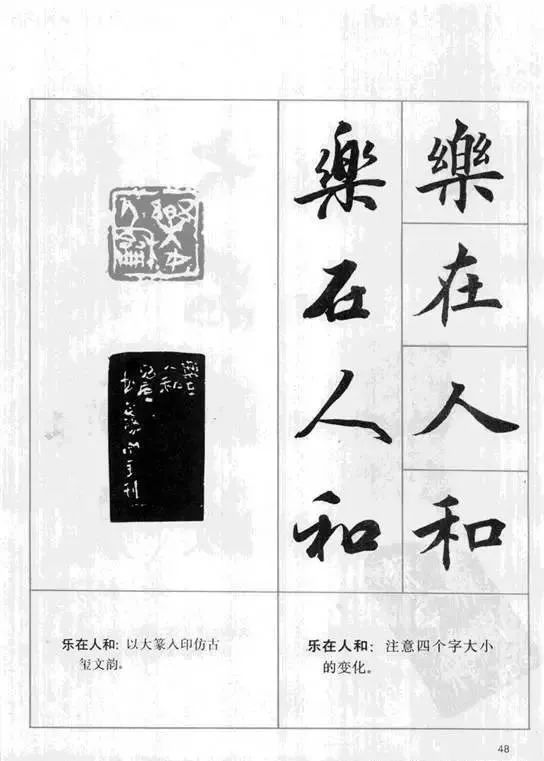 樂在人和
樂在人和
樂在
人和
乐在人和：以大篆入印仿古
玺文韵。
乐在人和：注意四个字大小
的变化。
48